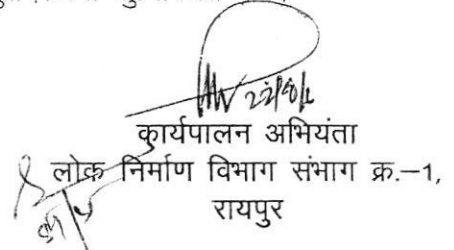 कार्यपालन अभियंता
लोक निर्माण विभाग संभाग क्र.–1,
रायपुर